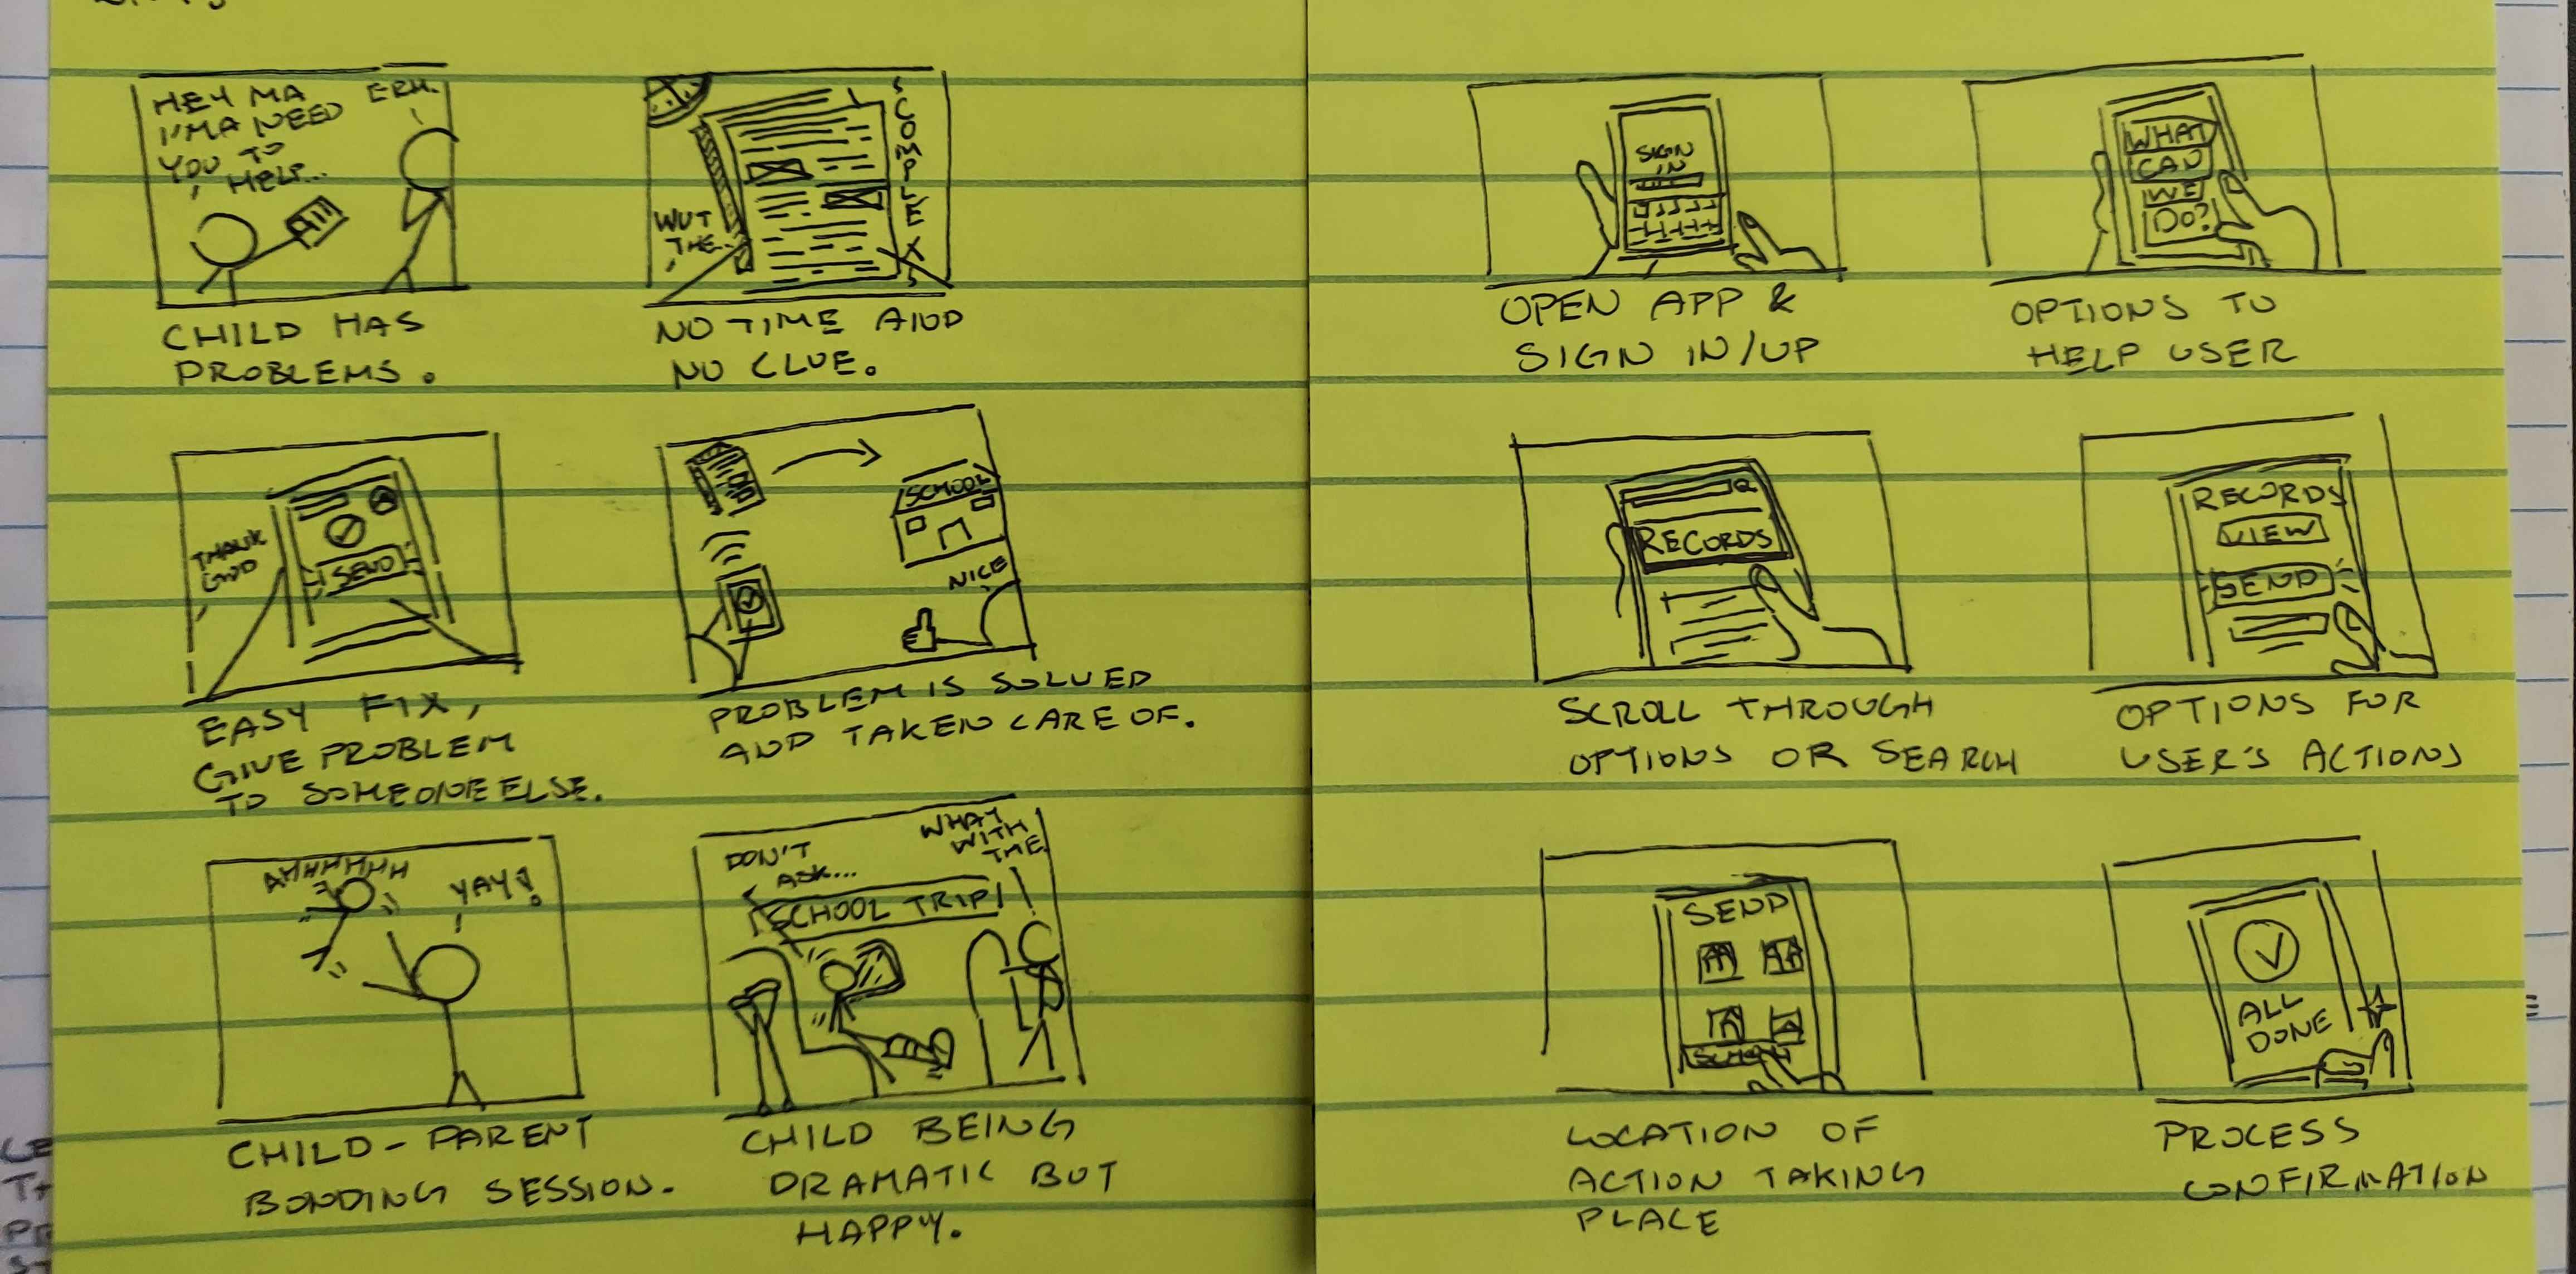 HEY MA
I'MA NEED
YOU TO
HELP...
ERM.
CHILD HAS
PROBLEMS.
WUT
THE..
COMPLEX
NO TIME AND
NO CLUE.
THANK
GOD
SEND
EASY FIX,
GIVE PROBLEM
TO SOMEONE ELSE.
SCHOOL
NICE
PROBLEM IS SOLVED
AND TAKEN CARE OF.
AHHHHHH
YAY!
CHILD-PARENT
BONDING SESSION.
DON'T
ASK...
WHAT
WITH
THE
SCHOOL TRIP
CHILD BEING
DRAMATIC BUT
HAPPY.
SIGN
IN
OPEN APP &
SIGN IN/UP
WHAT
CAN
WE
DO?
OPTIONS TO
HELP USER
RECORDS
SCROLL THROUGH
OPTIONS OR SEARCH
RECORDS
VIEW
SEND
OPTIONS FOR
USER'S ACTIONS
SEND
SCHOOL
LOCATION OF
ACTION TAKING
PLACE
ALL
DONE
PROCESS
CONFIRMATION